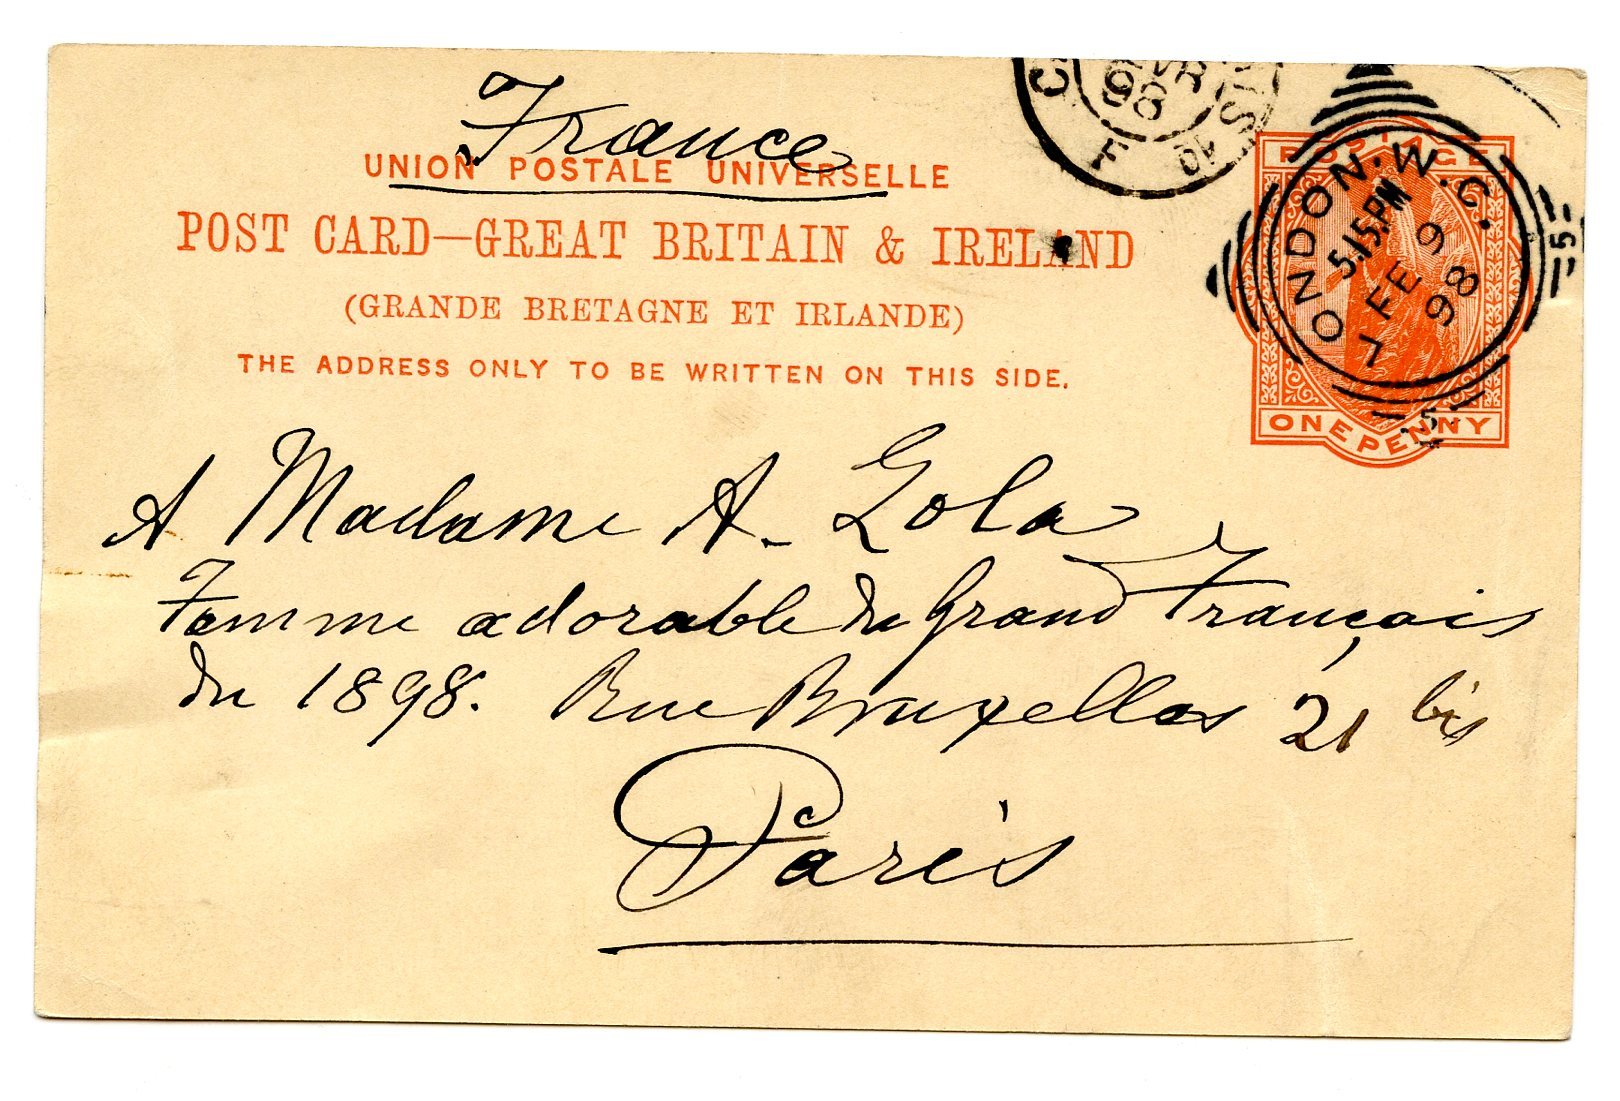 France
UNION POSTALE UNIVERSELLE
POST CARD—GREAT BRITAIN & IRELAND
(GRANDE BRETAGNE ET IRLANDE)
THE ADDRESS ONLY TO BE WRITTEN ON THIS SIDE.
POSTAGE
ONE PENNY
LONDON.W.C.
5.15.PM
7
FE 9
98
5
15
98
A Madame A. Zola
Femme adorable du grand Français
du 1898. Rue Bruxelles 21 bis
Paris